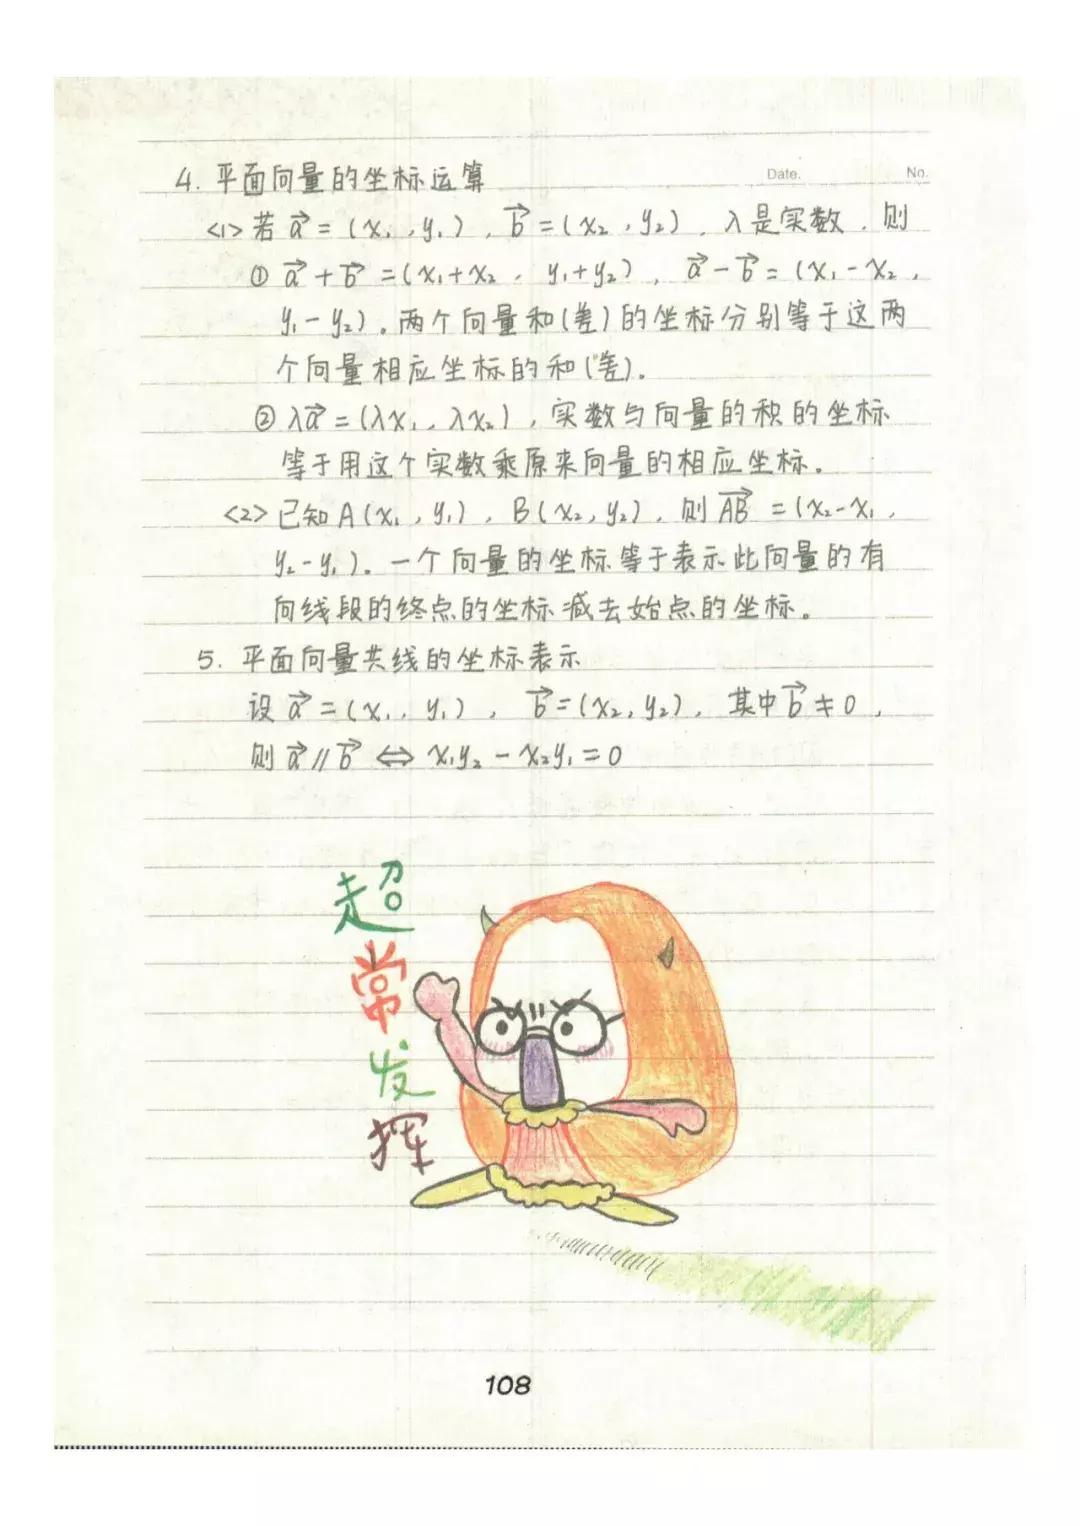 Date.
No.
4. 平面向量的坐标运算
<1> 若 a⃗ = (x₁, y₁), b⃗ = (x₂, y₂), λ是实数, 则
① a⃗ + b⃗ = (x₁+x₂, y₁+y₂), a⃗ - b⃗ = (x₁-x₂,
y₁-y₂)。两个向量和(差)的坐标分别等于这两
个向量相应坐标的和(差)。
② λa⃗ = (λx₁, λx₂), 实数与向量的积的坐标
等于用这个实数乘原来向量的相应坐标。
<2> 已知A(x₁, y₁), B(x₂, y₂), 则 AB⃗ = (x₂-x₁,
y₂-y₁)。一个向量的坐标等于表示此向量的有
向线段的终点的坐标减去始点的坐标。
5. 平面向量共线的坐标表示
设 a⃗ = (x₁, y₁), b⃗ = (x₂, y₂), 其中 b⃗ ≠ 0,
则 a⃗ // b⃗ ⇔ x₁y₂ - x₂y₁ = 0
超
常
发
挥
108